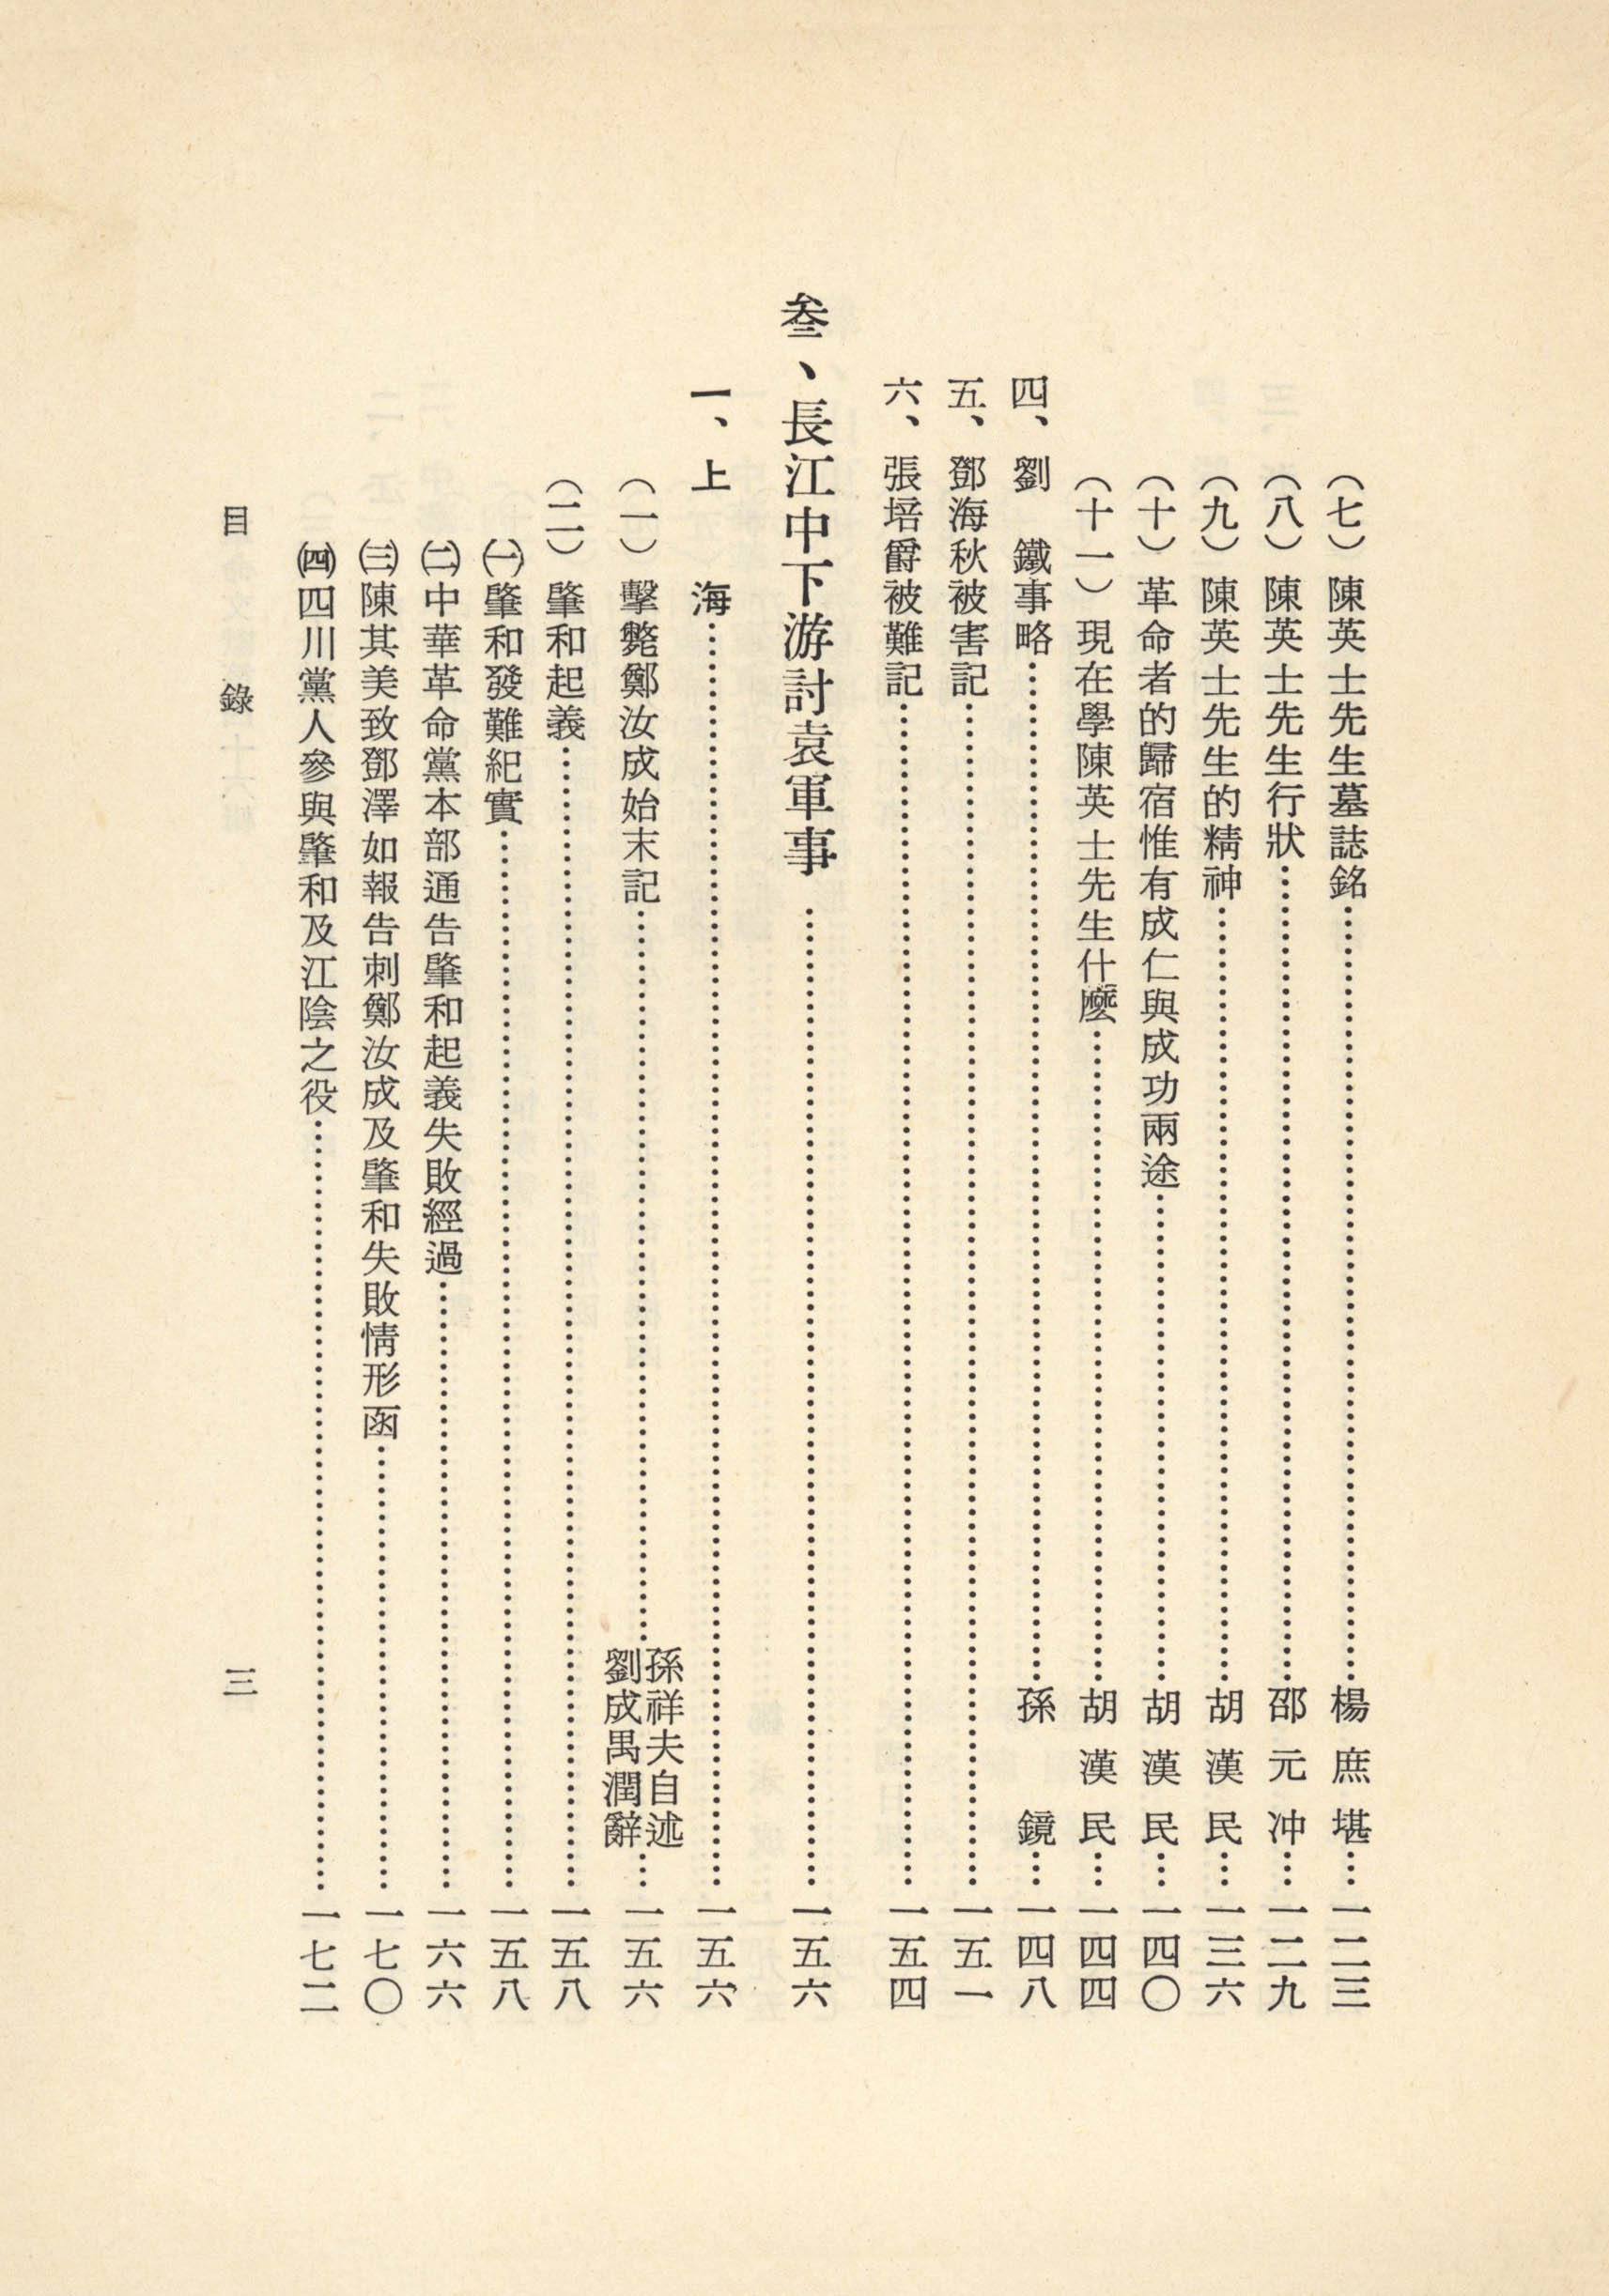 （七）陳英士先生墓誌銘……楊庶堪…一二三
（八）陳英士先生行狀……邵元冲…一二九
（九）陳英士先生的精神……胡漢民…一三六
（十）革命者的歸宿惟有成仁與成功兩途……胡漢民…一四〇
（十一）現在學陳英士先生什麼……胡漢民…一四四
四、劉　鐵事略……孫　鏡…一四八
五、鄧海秋被害記……一五一
六、張培爵被難記……一五四
叁、長江中下游討袁軍事……一五六
一、上　海……一五六
（一）擊斃鄭汝成始末記……孫祥夫自述 劉成禺潤辭…一五六
（二）肇和起義……一五八
㈠肇和發難紀實……一五八
㈡中華革命黨本部通告肇和起義失敗經過……一六六
㈢陳其美致鄧澤如報告刺鄭汝成及肇和失敗情形函……一七〇
㈣四川黨人參與肇和及江陰之役……一七二
目　錄　三